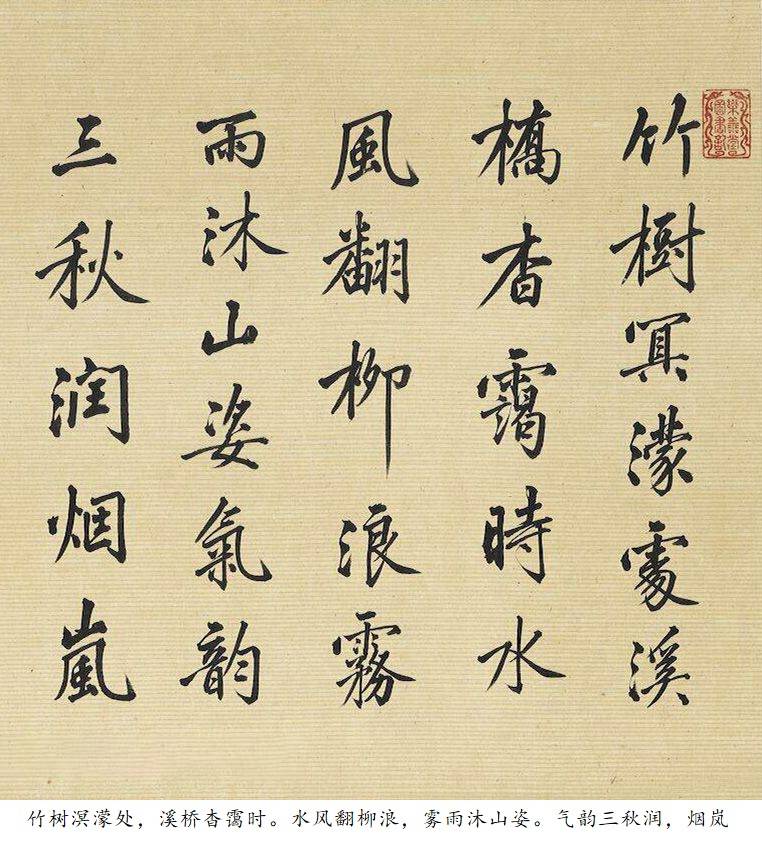 樂善堂
圖書記
竹樹冥濛處溪
橋杳靄時水
風翻柳浪霧
雨沐山姿氣韵
三秋潤烟嵐
竹树溟濛处，溪桥杳霭时。水风翻柳浪，雾雨沐山姿。气韵三秋润，烟岚